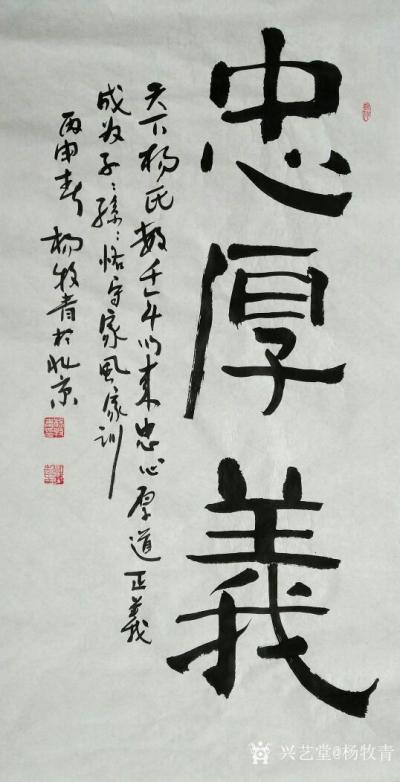 忠厚義
天下杨氏数千年以来忠心厚道正義
成为子:孫:恪守家風家训
丙申春杨牧青於北京
兴艺堂@杨牧青